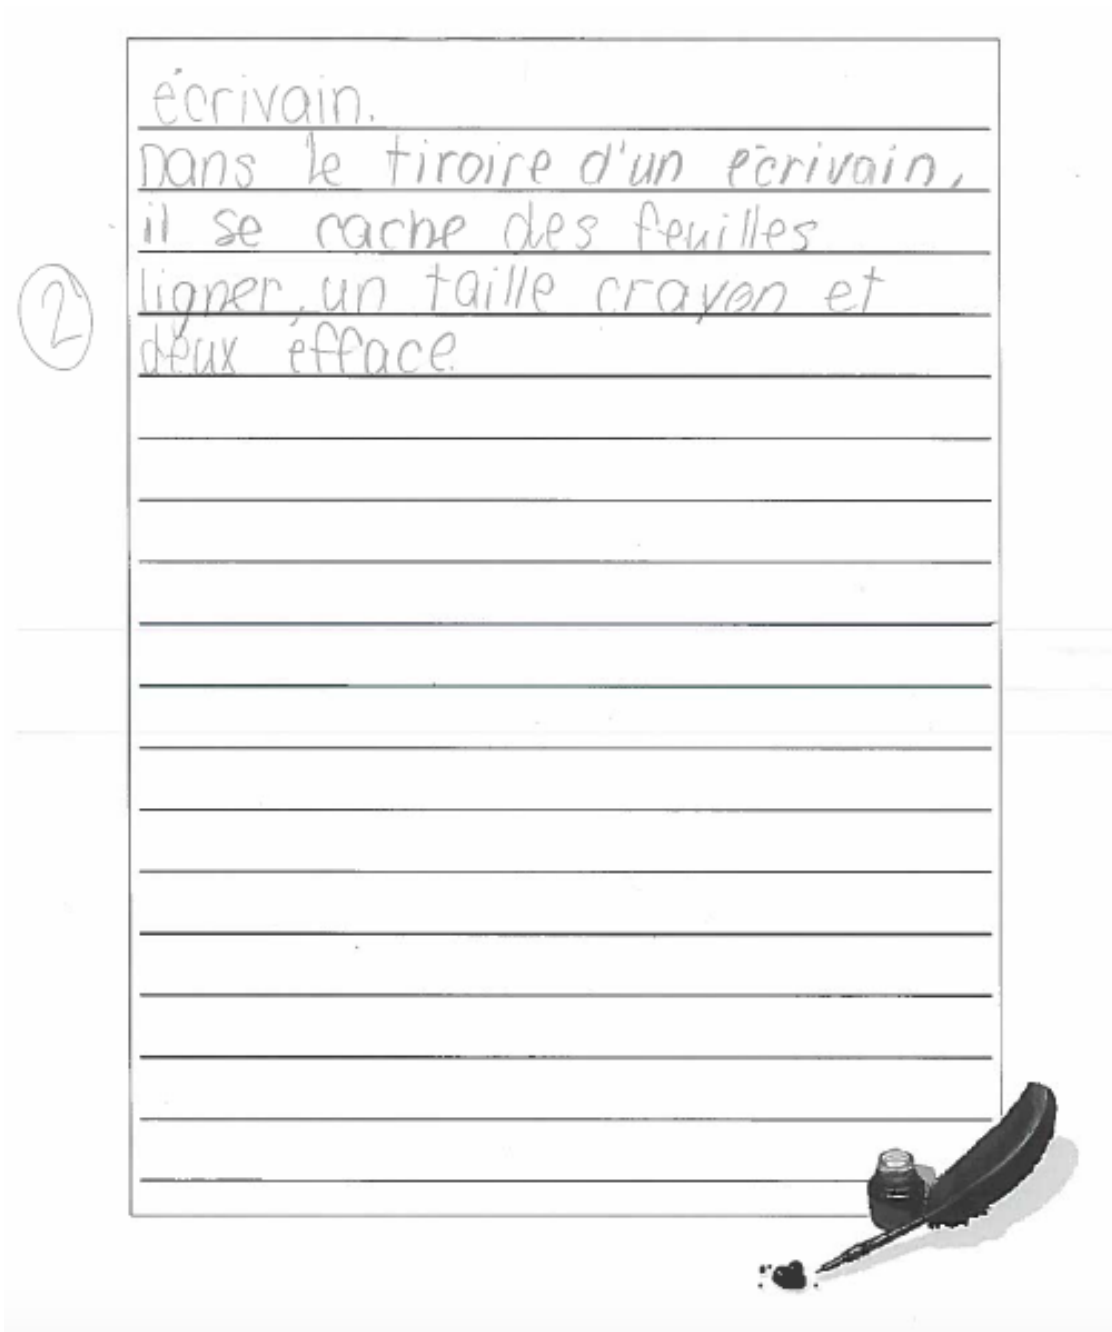 écrivain.
Dans le tiroire d'un écrivain,
il se cache des feuilles
ligner, un taille crayon et
2
deux éfface.